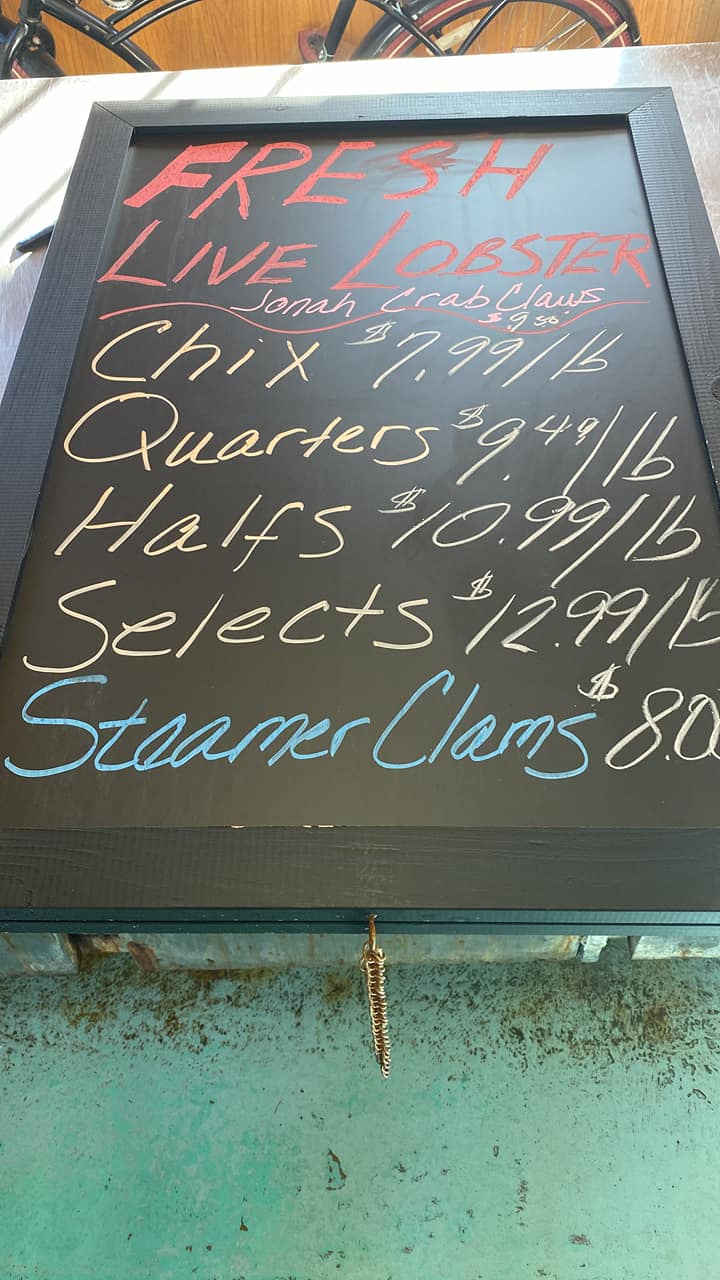 FRESH
LIVE LOBSTER
Jonah Crab Claws
$9.50
Chix $7.99/lb
Quarters $9.49/lb
Halfs $10.99/lb
Selects $12.99/lb
Steamer Clams $8.00